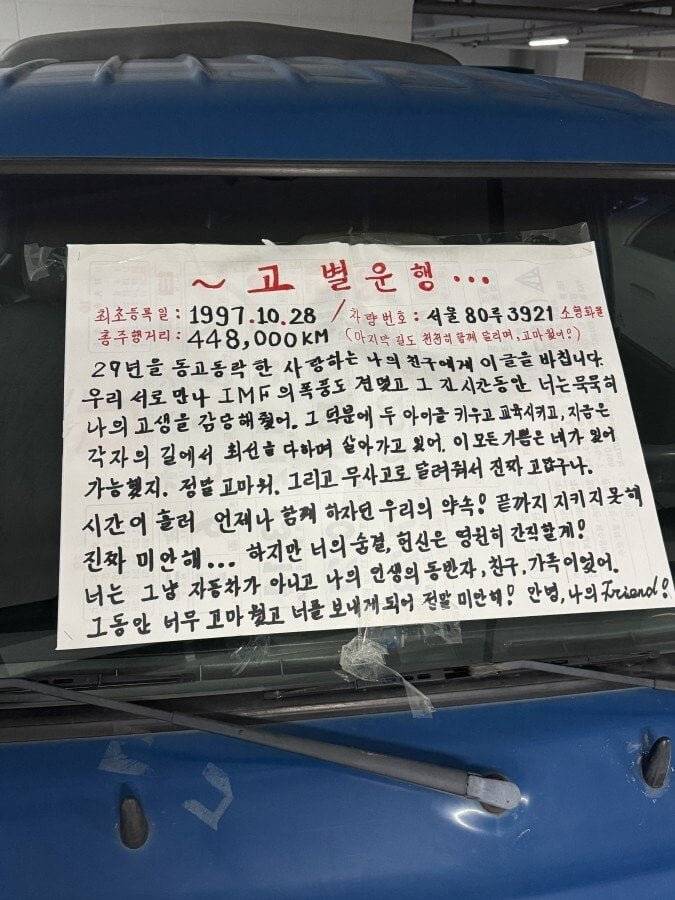 ~ 고별운행...
최초등록일 : 1997.10.28 / 차량번호 : 서울 80루 3921 소형화물
총주행거리 : 448,000KM (마지막 길도 천천히 함께 달리며, 고마웠어!)
29년을 동고동락 한 사랑하는 나의 친구에게 이 글을 바칩니다.
우리 서로 만나 IMF의 폭풍도 견뎠고 그 긴 시간동안 너는 묵묵히
나의 고생을 감당해 줬어. 그 덕분에 두 아이를 키우고 교육시키고, 지금은
각자의 길에서 최선을 다하며 살아가고 있어. 이 모든 기쁨은 네가 있어
가능했지. 정말 고마워. 그리고 무사고로 달려줘서 진짜 고맙구나.
시간이 흘러 언제나 함께 하자던 우리의 약속! 끝까지 지키지 못해
진짜 미안해... 하지만 너의 숨결, 헌신은 영원히 간직할게!
너는 그냥 자동차가 아니고 나의 인생의 동반자, 친구, 가족이었어.
그동안 너무 고마웠고 너를 보내게 되어 정말 미안해! 안녕, 나의 Friend!